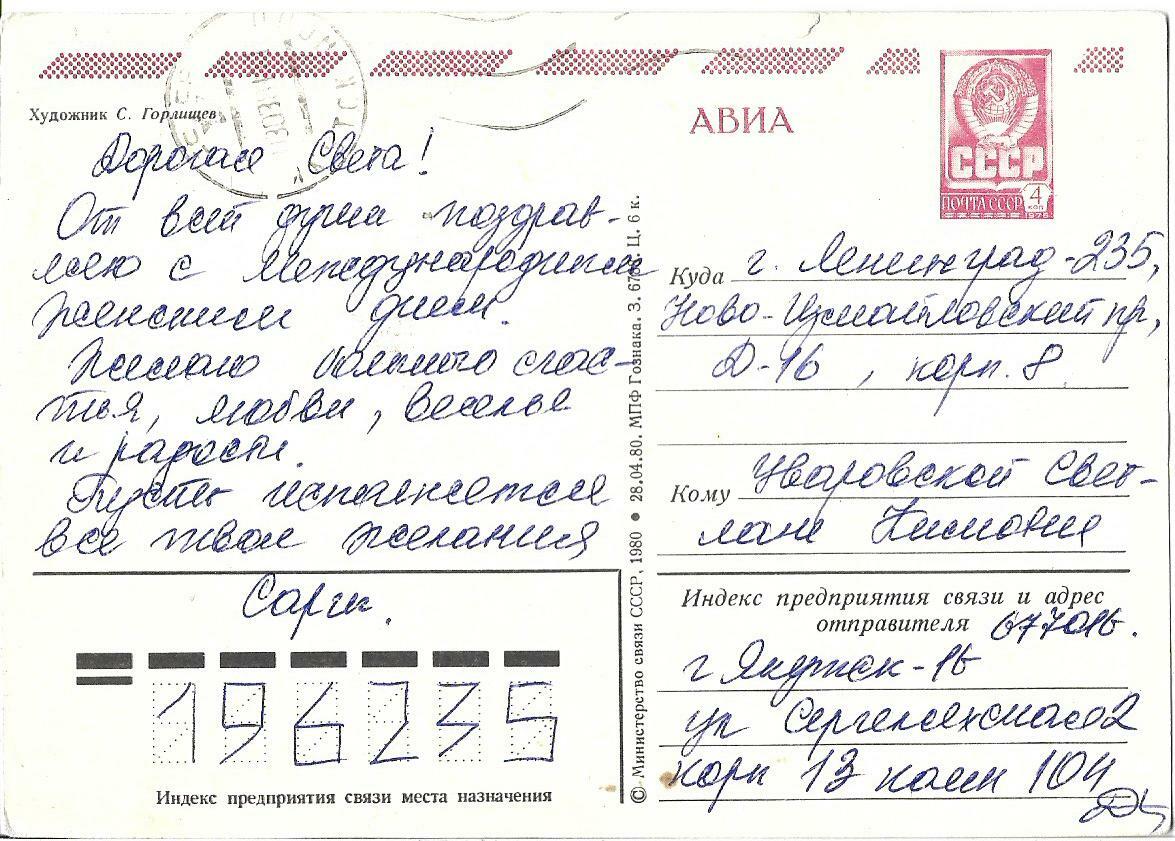 Художник С. Горлищев
АВИА
СССР
ПОЧТА СССР 4 КОП
1975
Дорогая Света!
От всей души поздрав-
ляю с Международным
женским днем.
Желаю большого счас-
тья, любви, веселье
и радости.
Пусть исполняется
все твои желания
Сарги.
196235
Индекс предприятия связи места назначения
© Министерство связи СССР, 1980 • 28.04.80. МПФ Гознака. З. Ц. 6 к.
Куда г. Ленинград-235,
Ново-Измайловский пр,
Д-16, корп. 8
Кому Уваровской Свет-
лане
Индекс предприятия связи и адрес
отправителя 677016.
г Якутск-16
ул Сергеляхская 2
корп 13 комн 104